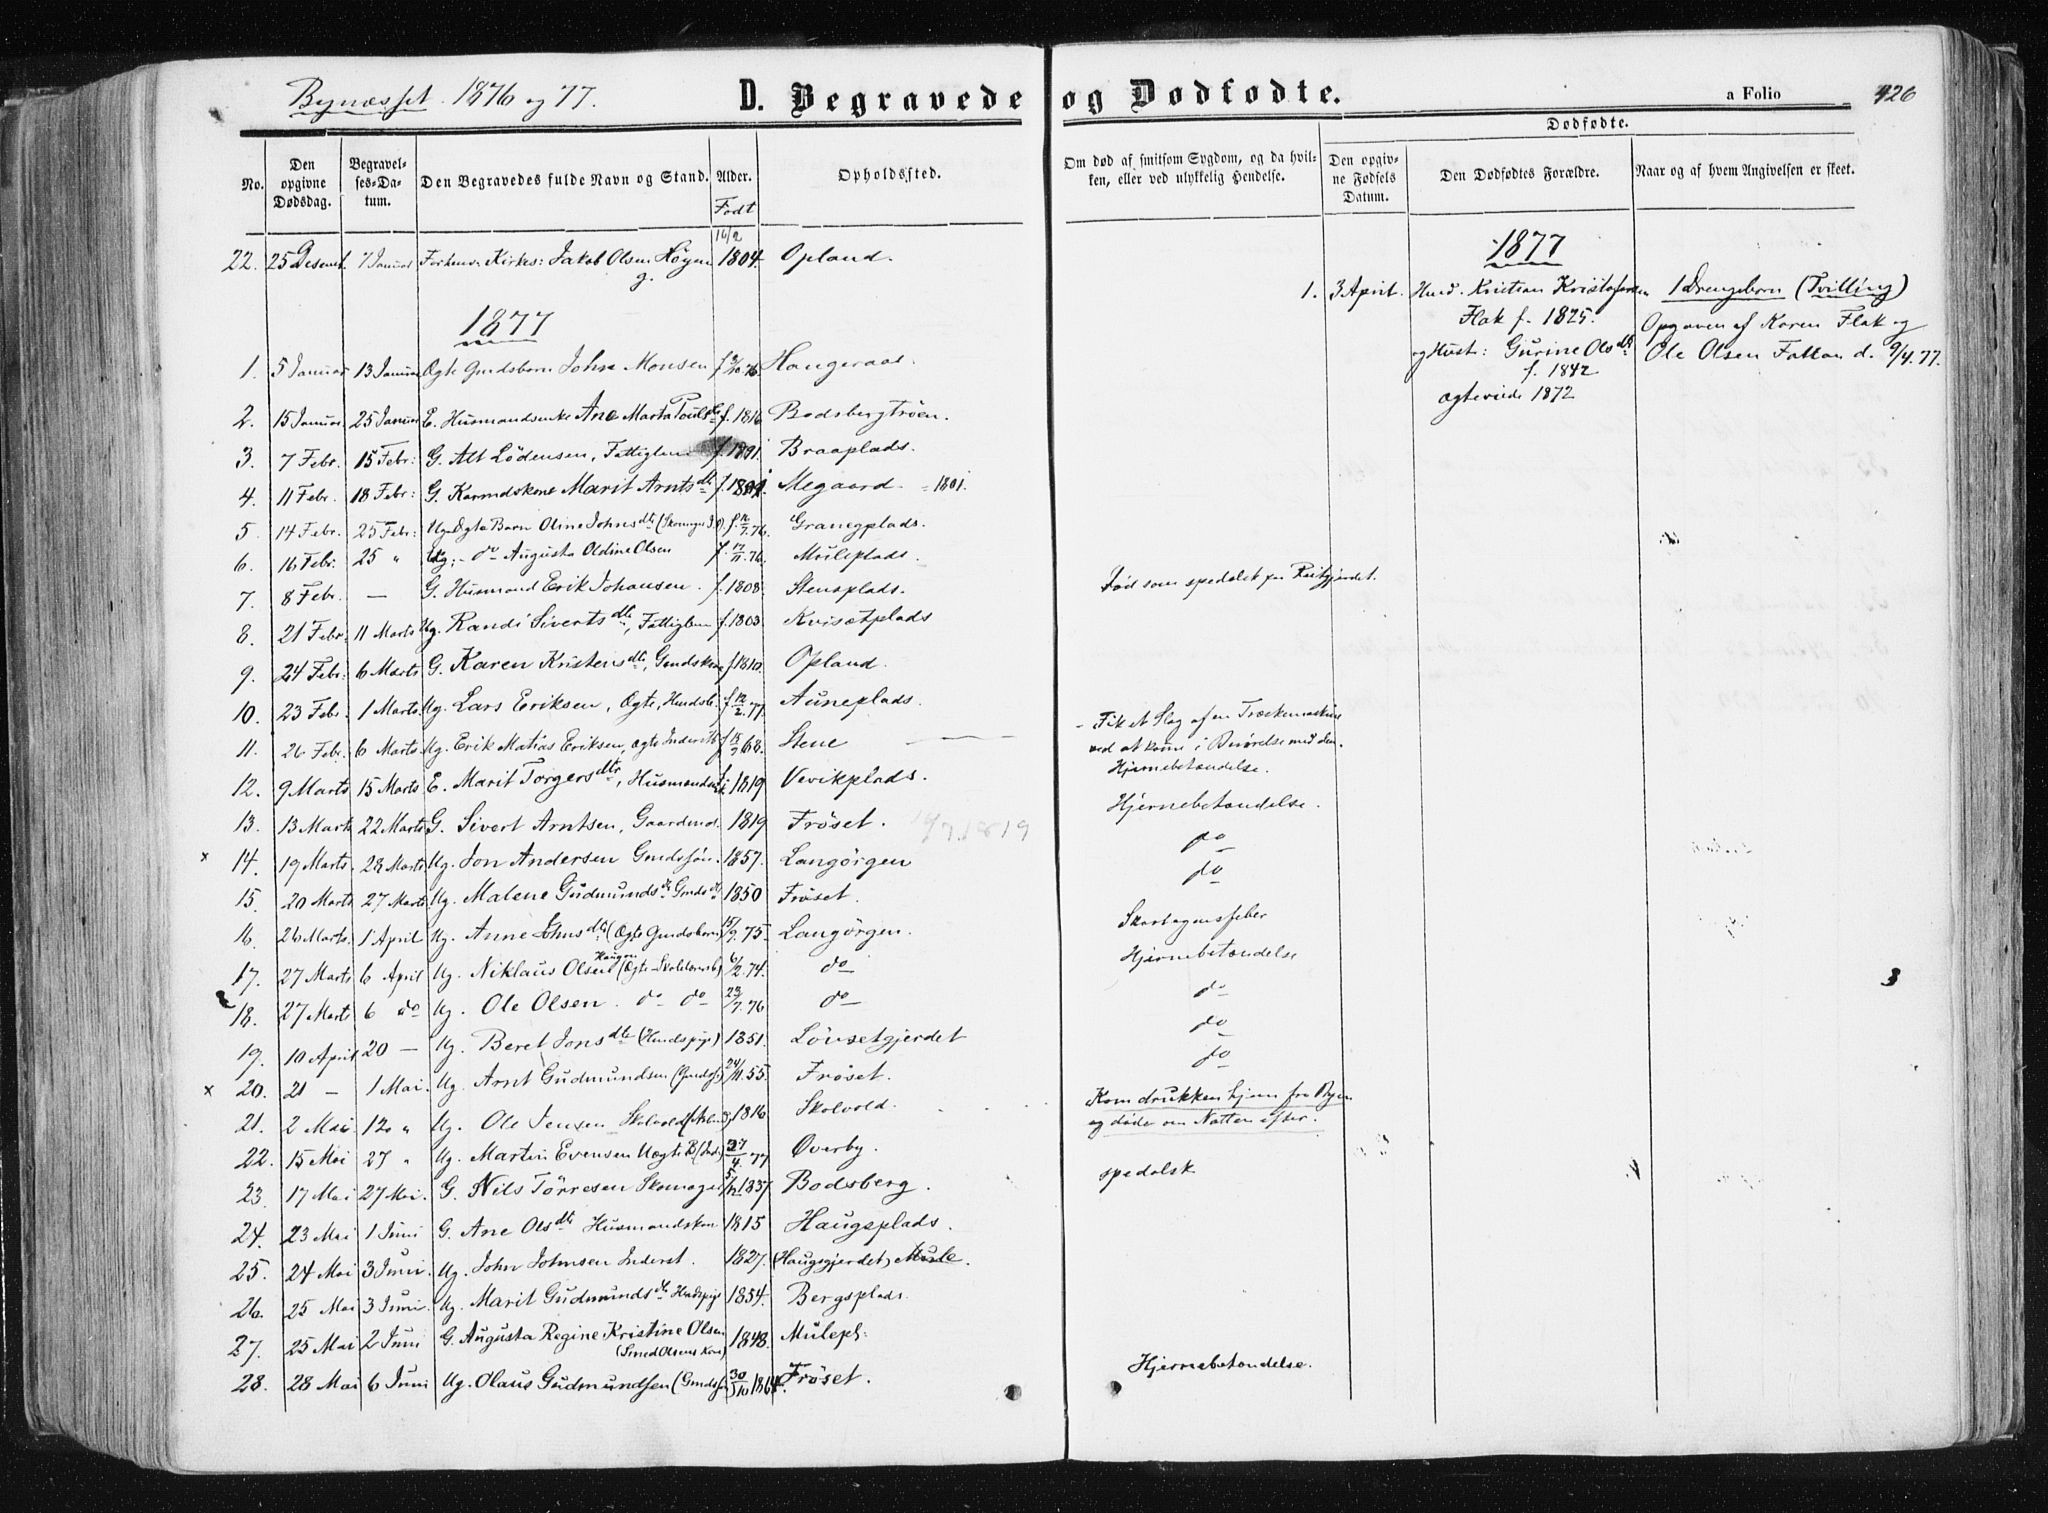 Bynæsset 1876 og 77.
D. Begravede og Dødfødte.
a Folio 426
No.
Den opgivne Dødsdag.
Begravelses-Datum.
Den Begravedes fulde Navn og Stand.
Alder.
Født
Opholdssted.
Om død af smitsom Sygdom, og da hvilken, eller ved ulykkelig Hendelse.
Dødfødte.
Den opgivne Fødsels Datum.
Den Dødfødtes Forældre.
Naar og af hvem Angivelsen er skeet.
22. 25 Desembr. 7 Januar Jakob Olsen Høyen 16/2 1804. Opland.
g.
1877
1. 5 Januar 13 Januar Ægte Gmdsbarn Johs Monsen Haugeraas.
2. 15 Januar. 25 Januar E. Husmandsenke Ane Marta f. 1816 Bodsbergtrøen.
3. 7 Febr. 15 Febr: G. Fattiglem Braaplads.
4. 11 Febr. 18 Febr: G. Marit Arntsdtr Megaard - 1801.
5. 14 Febr. 25 Febr: Ægte Barn Oline Johnsdtr f. 12/7.76. Granegplads.
6. 16 Febr. 25 " do Augusta Oldine Olsen f. 17/11.76. Muleplads.
7. 8 Febr. — G. Husmand Erik Johansen. f. 1808. Stensplads. Død som spedalsk paa Reitgjerdet.
8. 21 Febr: 11 Marts Ug. Randi Sivertsdtr, Fattiglem f. 1803. Kvisetplads
9. 24 Febr: 6 Marts G. Karen Kristensdtr, Gmdskone f 1810. Opland.
10. 23 Febr. 1 Marts. Ug. Lars Eriksen, Ægte, f. 12/2.77. Auneplads.
11. 26 Febr. 6 Marts Ug. Erik Matias Eriksen, ægte 68. Stene — Fik et Slag af en Træskemaskine
ved at komme i Berørelse med den.
Hjernebetændelse.
12. 9 Marts 15 Marts E. Marit Torgersdtr, 1819 Vevikplads.
13. 13 Marts 22 Marts G. Sivert Arntsen, Gaardmd. 1819 Frøset. 19/7.1819 Hjernebetændelse.
x 14. 19 Marts. 28 Marts Ug. Jon Andersen Gmdssøn. 1857. Langørgen do
15. 20 Marts 27 Marts Ug. Malene Gudmundsdtr Gmdsdtr 1850 Frøset. do
16. 26 Marts. 1 April Ug. Anne Johnsdtr (Ægte Gmdsbarn) 15/9.75- Langørgen. Skarlagensfeber
17. 27 Marts 6 April Ug. Niklaus Olsen Haugen 6/2.74. do Hjernebetændelse
18. 27 Marts 6 do Ug. Ole Olsen. do do 23/7.76 do do
19. 10 April 20 — Ug. Beret Jonsdtr 1851. Løvsetgjerdet do
x 20. 21 — 1 Mai. Ug. Arnt Gudmundsen 24/11.55. Frøset. do
21. 2 Mai 12 " Ug. Ole Jensen Skolvold 1816 Skolvold. Kom drukken hjem fra Byen
og døde om Natten efter.
22. 15 Mai 27 " Ug. Martin Evensen 27/4 77 Øverby.
23. 17 Mai 27 Mai. G. Nils Tørresen Skomager 1837 Bodsberg. spedalsk
24. 23 Mai 1 Juni G. Ane Olsdtr Husmandskone 1815 Haugsplads.
25. 24 Mai 3 Juni. Ug. John Johnsen Inderst. 1827. (Haugsgjerdet) Mule.
26. 25 Mai 3 Juni. Ug. Marit Gudmundsdtr 1854. Bergsplads.
27. 25 Mai 2 Juni G. Augusta Regine Kristine Olsen 1848. Mulepl:
(Sived Olsens Kone)
28. 28 Mai 6 Juni Ug. Olaus Gudmundsen 30/10 1864. Frøset. Hjernebetændelse.
1877
1. 3 April. Husmd. Kristian Kristofersen 1 Drengebarn (Tvilling)
Flak f. 1825. Opgaven af Karen Flak og
og Hust: Gurine Olsdtr Ole Olsen d. 9/4.77.
f. 1842
ægteviede 1872